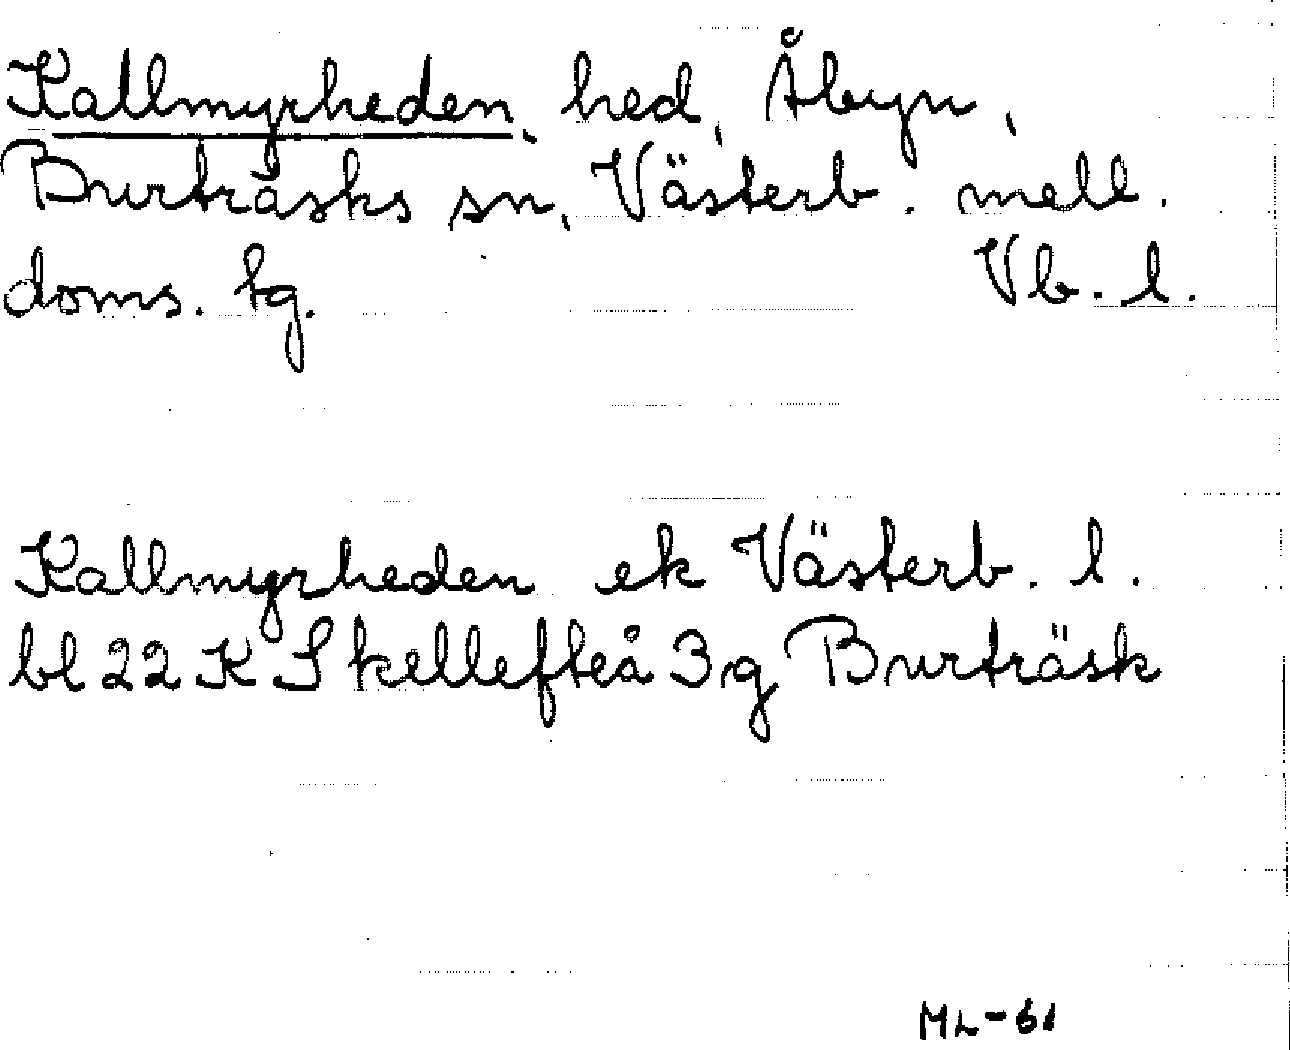 Kallmyrheden, hed, Åbyn,
Burträsks sn, Västerb. mell.
doms. tg. Vb. l.
Kallmyrheden ek Västerb. l.
bl 22 K Skellefteå 3 g Burträsk
ML-61